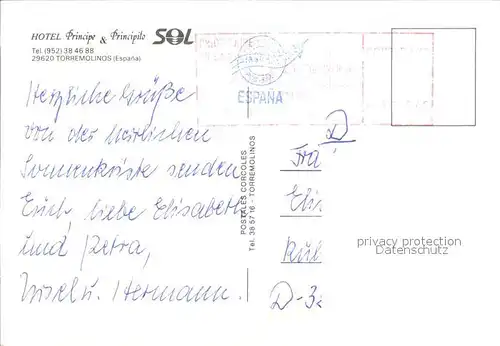 HOTEL Principe & Principito SOL
Tel. (952) 38 46 88
29620 TORREMOLINOS (España)
ESPAÑA
Herzliche Grüße
von der herrlichen
Sonnenküste senden
Euch, liebe Elisabeth
und Petra,
Gisel u. Hermann.
POSTALES CORCOLES
Tel. 38 57 16 - TORREMOLINOS
D
Fra
Elis
D-3
privacy protection
Datenschutz